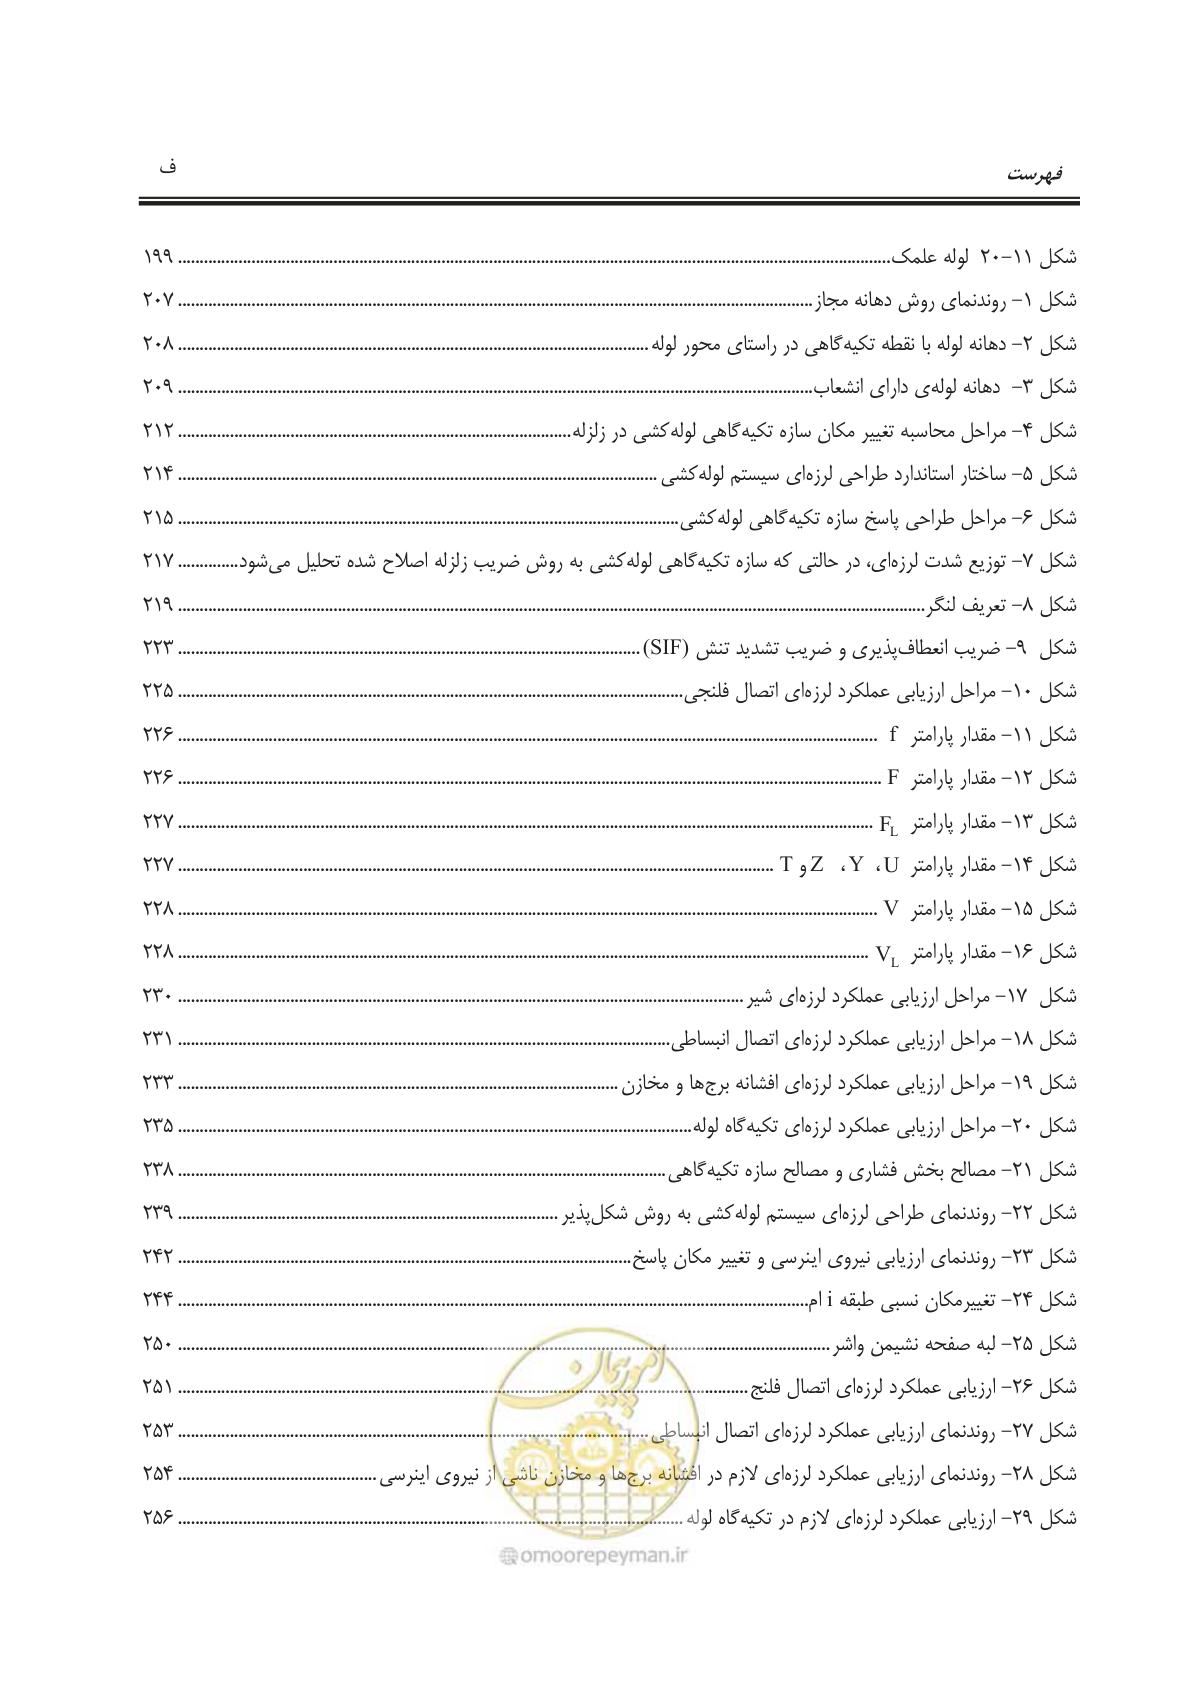 فهرست ف
شکل ۱۱-۲۰ لوله علمک ۱۹۹
شکل ۱- روندنمای روش دهانه مجاز ۲۰۷
شکل ۲- دهانه لوله با نقطه تکیه‌گاهی در راستای محور لوله ۲۰۸
شکل ۳- دهانه لوله‌ی دارای انشعاب ۲۰۹
شکل ۴- مراحل محاسبه تغییر مکان سازه تکیه‌گاهی لوله‌کشی در زلزله ۲۱۲
شکل ۵- ساختار استاندارد طراحی لرزه‌ای سیستم لوله‌کشی ۲۱۴
شکل ۶- مراحل طراحی پاسخ سازه تکیه‌گاهی لوله‌کشی ۲۱۵
شکل ۷- توزیع شدت لرزه‌ای، در حالتی که سازه تکیه‌گاهی لوله‌کشی به روش ضریب زلزله اصلاح شده تحلیل می‌شود ۲۱۷
شکل ۸- تعریف لنگر ۲۱۹
شکل ۹- ضریب انعطاف‌پذیری و ضریب تشدید تنش (SIF) ۲۲۳
شکل ۱۰- مراحل ارزیابی عملکرد لرزه‌ای اتصال فلنجی ۲۲۵
شکل ۱۱- مقدار پارامتر f ۲۲۶
شکل ۱۲- مقدار پارامتر F ۲۲۶
شکل ۱۳- مقدار پارامتر F_L ۲۲۷
شکل ۱۴- مقدار پارامتر U، Y، Z و T ۲۲۷
شکل ۱۵- مقدار پارامتر V ۲۲۸
شکل ۱۶- مقدار پارامتر V_L ۲۲۸
شکل ۱۷- مراحل ارزیابی عملکرد لرزه‌ای شیر ۲۳۰
شکل ۱۸- مراحل ارزیابی عملکرد لرزه‌ای اتصال انبساطی ۲۳۱
شکل ۱۹- مراحل ارزیابی عملکرد لرزه‌ای افشانه برج‌ها و مخازن ۲۳۳
شکل ۲۰- مراحل ارزیابی عملکرد لرزه‌ای تکیه‌گاه لوله ۲۳۵
شکل ۲۱- مصالح بخش فشاری و مصالح سازه تکیه‌گاهی ۲۳۸
شکل ۲۲- روندنمای طراحی لرزه‌ای سیستم لوله‌کشی به روش شکل‌پذیر ۲۳۹
شکل ۲۳- روندنمای ارزیابی نیروی اینرسی و تغییر مکان پاسخ ۲۴۲
شکل ۲۴- تغییرمکان نسبی طبقه i ام ۲۴۴
شکل ۲۵- لبه صفحه نشیمن واشر ۲۵۰
شکل ۲۶- ارزیابی عملکرد لرزه‌ای اتصال فلنج ۲۵۱
شکل ۲۷- روندنمای ارزیابی عملکرد لرزه‌ای اتصال انبساطی ۲۵۳
شکل ۲۸- روندنمای ارزیابی عملکرد لرزه‌ای لازم در افشانه برج‌ها و مخازن ناشی از نیروی اینرسی ۲۵۴
شکل ۲۹- ارزیابی عملکرد لرزه‌ای لازم در تکیه‌گاه لوله ۲۵۶
امور پیمان
@omoorepeyman.ir